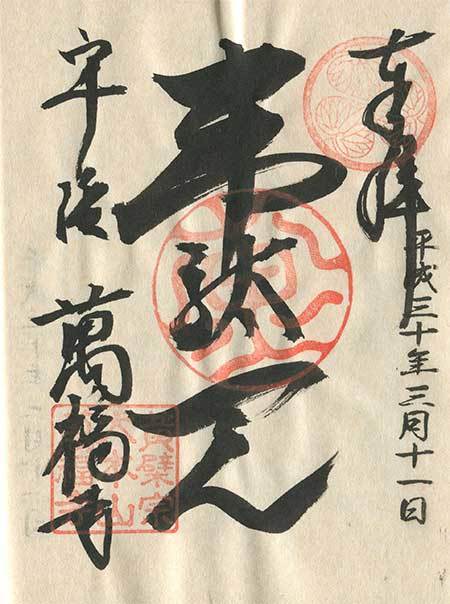 奉拝
平成三十年三月十一日
韋駄天
宇治
萬福寺
黄檗宗
大本山